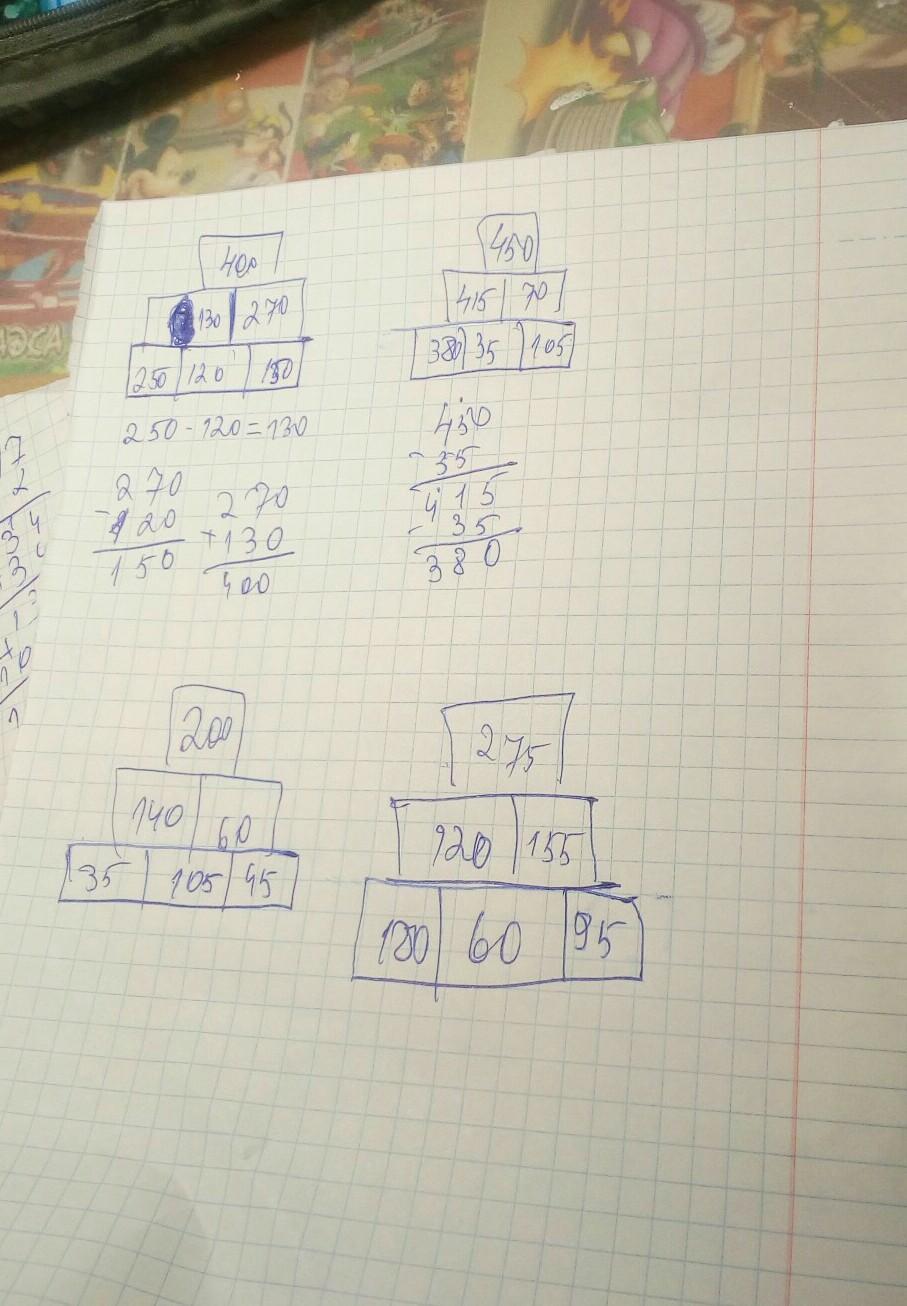 400
130 270
250 120 150
250-120=130
270
-120
150
270
+130
400
450
415 70
380 35 105
450
-35
415
-35
380
200
140 60
35 105 45
275
120 155
180 60 95